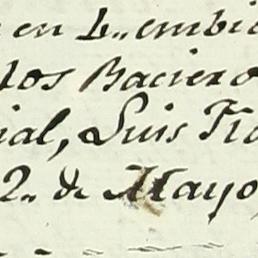 en 1.. embi
tos Baciero
ial, Luis
2.. de Mayo,